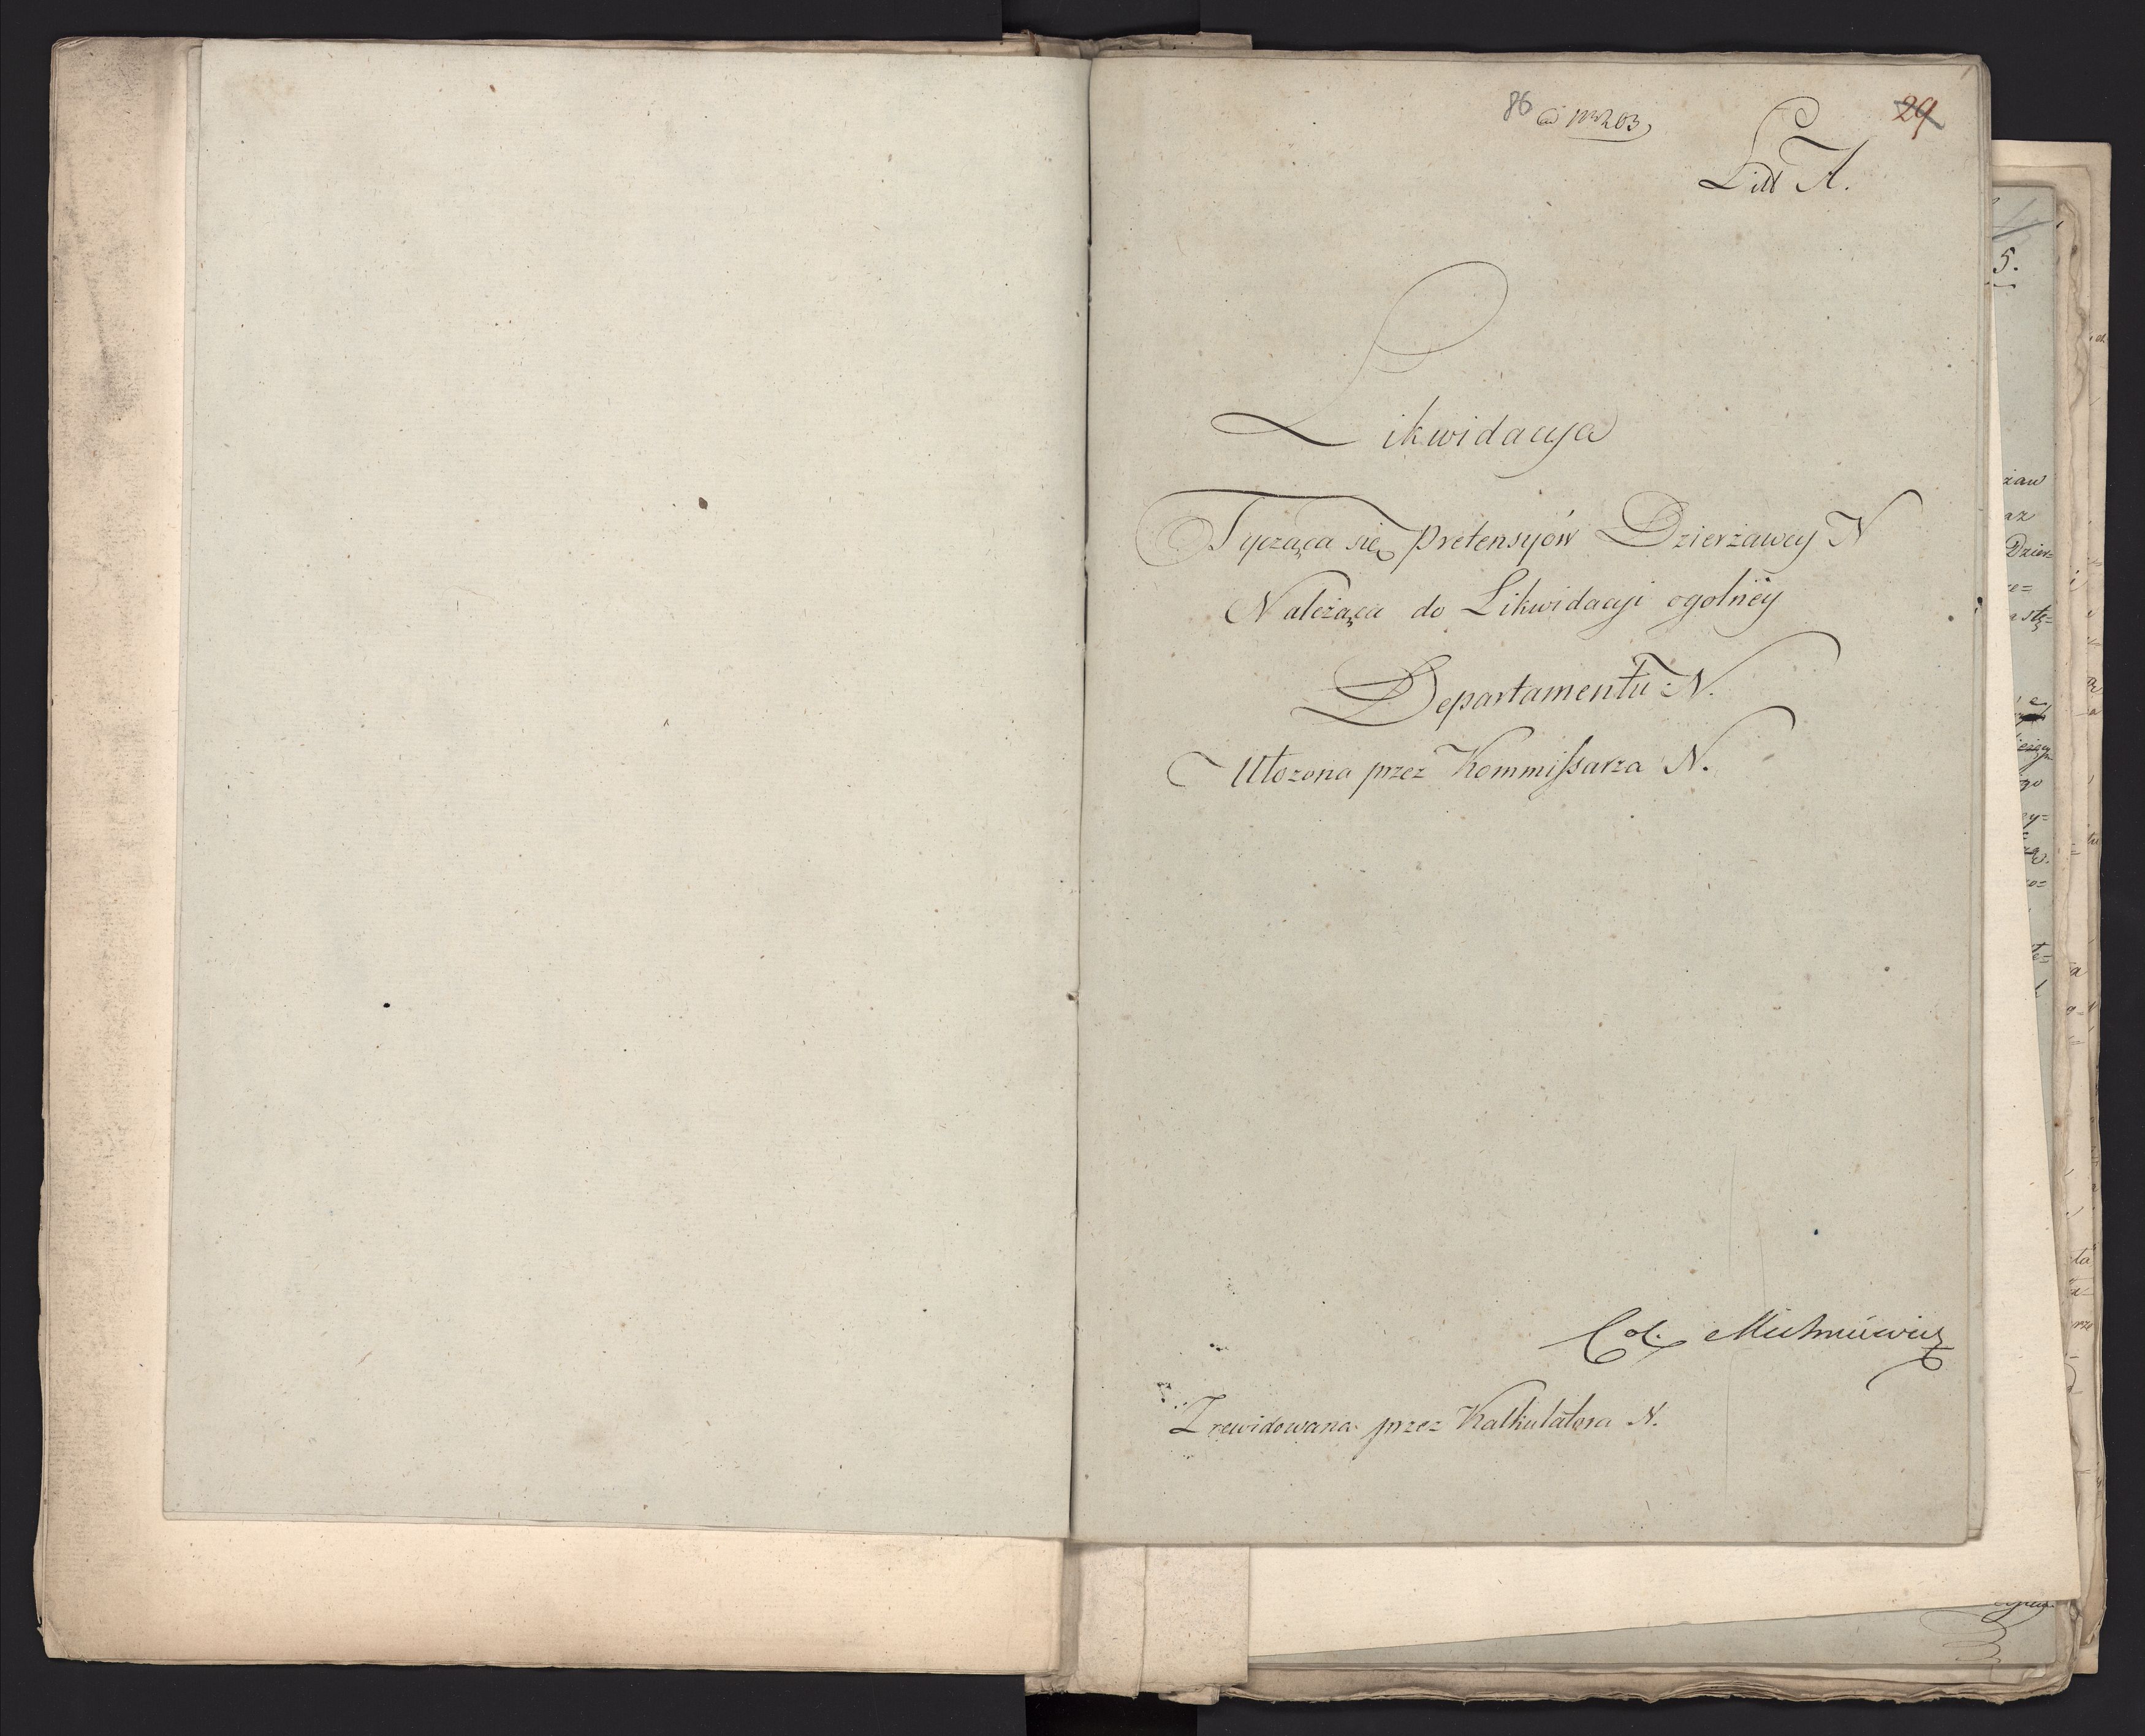 86 ad No 263
29
Litt A.
Likwidacyja
Tycząca się pretensyów Dzierżawcy N
Należąca do Likwidacyi ogolnéy
Departamentu N.
Ułożona przez Kommissarza N.
Col.
Zrewidowana przez Kalkulatora N.
5.